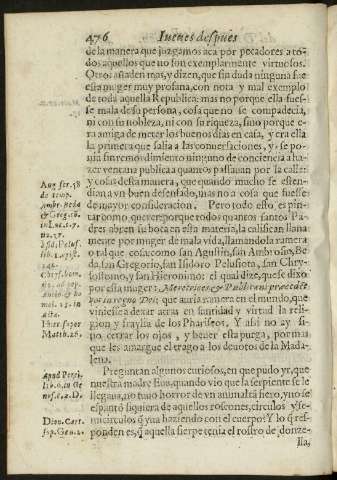 476 Jueues despues
de la manera que juzgamos aca por pecadores a to-
dos aquellos que no son exemplarmente virtuosos.
Otros añaden mas, y dizen, que sin duda ninguna fue
esta muger muy profana, con nota y mal exemplo
de toda aquella Republica: mas no porque ella fues-
se mala de su persona, cosa que no se compadecia,
ni con su nobleza, ni con su riqueza, sino porque e-
ra amiga de meter los buenos dias en casa, y era ella
la primera que salia a las conuersaciones, y se po-
nia sin remordimiento ninguno de conciencia a ha-
zer ventana publica a quantos passauan por la calle:
y cosas desta manera, que quando mucho se esten-
dian a vn buen desenfado, mas no a cosa que fuesse
de mayor consideracion. Pero todo esso es pin-
tar como querer: porque todos quantos santos Pa-
dres abren su boca en esta materia, la califican llana
mente por muger de mala vida, llamandola ramera
o tal que cosa: como san Agustin, san Ambrosio, Be-
da, san Gregorio, san Isidoro Pelusiota, san Chry-
sostomo, y san Hieronimo: el qual dize, que se dixo
por esta muger: Meretrices & Publicani præcedēt
vos in regno Dei; que auria ramera en el mundo, que
viniesse a dexar atras en santidad y virtud la reli-
gion y fraylia de los Phariseos. Y assi no ay si-
no cerrar los ojos, y beuer esta purga, por mas
que les amargue el trago a los deuotos de la Mada-
lena.
Preguntan algunos curiosos, en que pudo yr, que
nuestra madre Eua, quando vio que la serpiente se le
llegaua, no tuuo horror de vn animal tan fiero, y no se
espantó siquiera de aquellos roscones, circulos y se-
micirculos q̃ yua haziendo con el cuerpo? Y lo q̃ res-
ponden es, q̃ aquella sierpe tenia el rostro de donze-
lla,
Aug ser. 58
de temp.
Ambr. Beda
& Greg. sb.
in Luc. c. 7.
nu. 37.
Isid. Pelus.
lib. 1. epist.
Matth. 26.
Apud Perei,
lib. 6. in Ge
nes. c. 2. D.
Dion. Cart.
sup. Gen. 2.